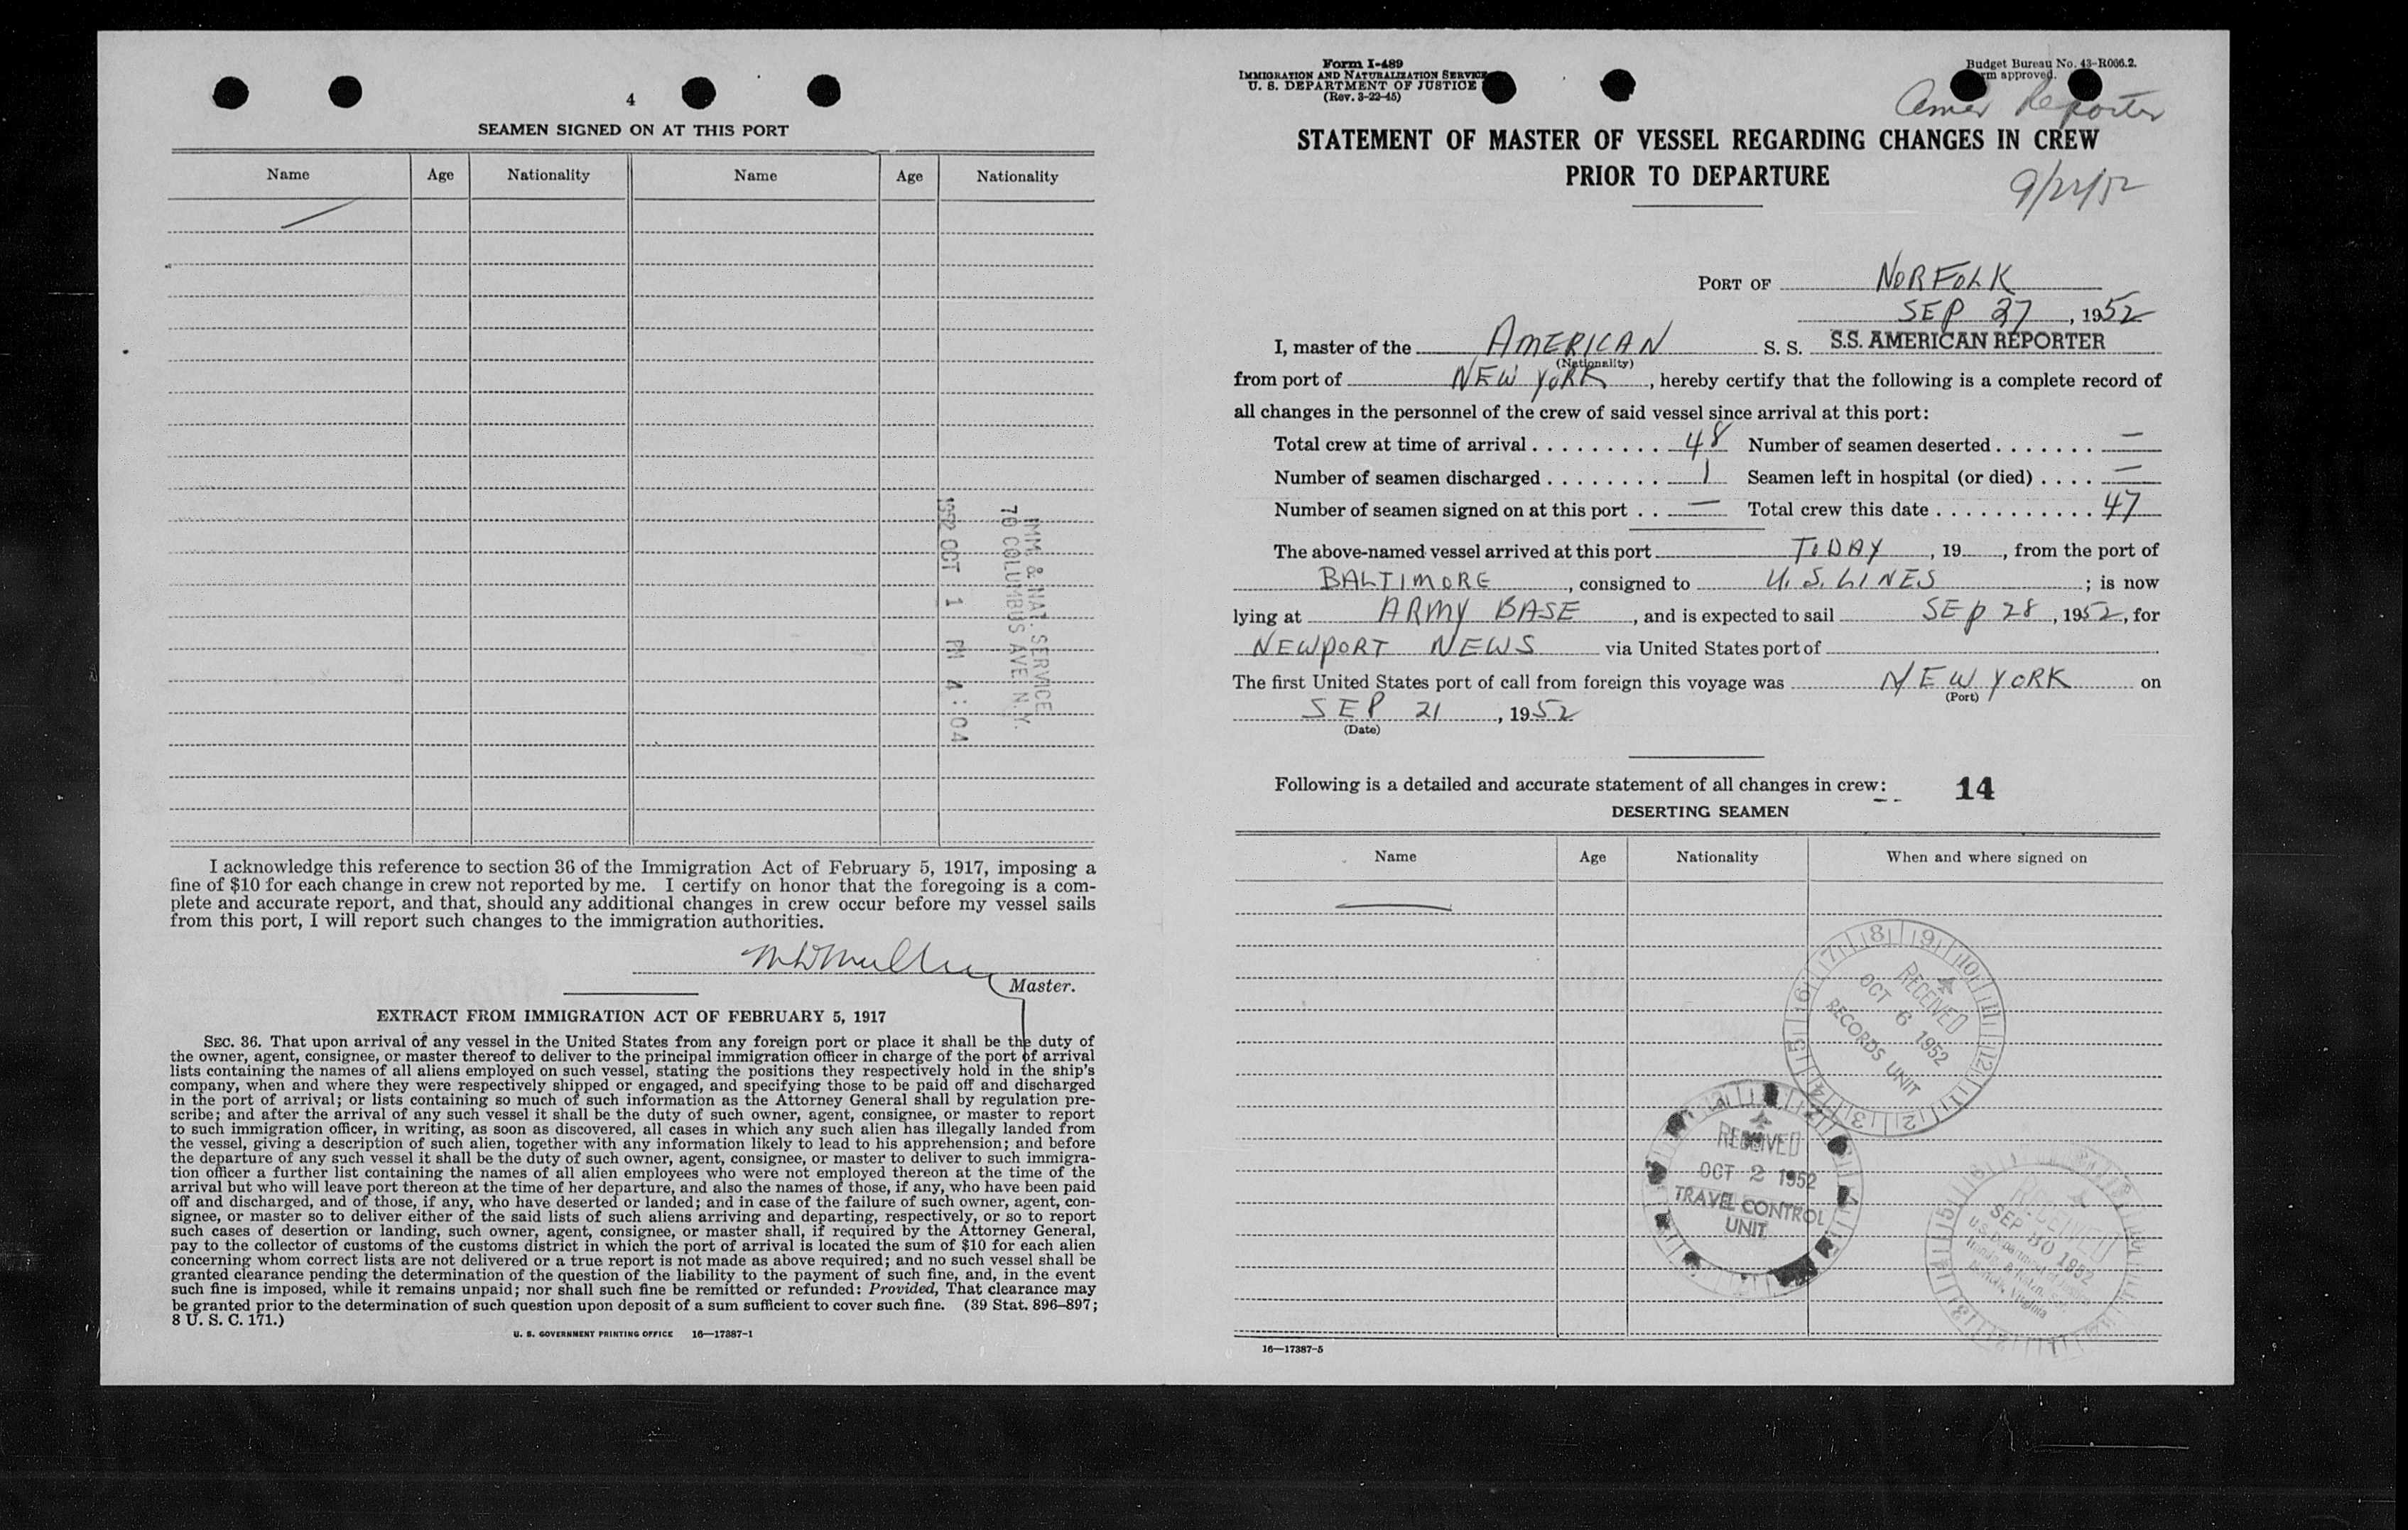 4
SEAMEN SIGNED ON AT THIS PORT
Name Age Nationality Name Age Nationality
1952 OCT 1 PM 4:04
IMM. & NAT. SERVICE
70 COLUMBUS AVE. N.Y.
I acknowledge this reference to section 36 of the Immigration Act of February 5, 1917, imposing a
fine of $10 for each change in crew not reported by me. I certify on honor that the foregoing is a com-
plete and accurate report, and that, should any additional changes in crew occur before my vessel sails
from this port, I will report such changes to the immigration authorities.
Master.
EXTRACT FROM IMMIGRATION ACT OF FEBRUARY 5, 1917
SEC. 36. That upon arrival of any vessel in the United States from any foreign port or place it shall be the duty of
the owner, agent, consignee, or master thereof to deliver to the principal immigration officer in charge of the port of arrival
lists containing the names of all aliens employed on such vessel, stating the positions they respectively hold in the ship's
company, when and where they were respectively shipped or engaged, and specifying those to be paid off and discharged
in the port of arrival; or lists containing so much of such information as the Attorney General shall by regulation pre-
scribe; and after the arrival of any such vessel it shall be the duty of such owner, agent, consignee, or master to report
to such immigration officer, in writing, as soon as discovered, all cases in which any such alien has illegally landed from
the vessel, giving a description of such alien, together with any information likely to lead to his apprehension; and before
the departure of any such vessel it shall be the duty of such owner, agent, consignee, or master to deliver to such immigra-
tion officer a further list containing the names of all alien employees who were not employed thereon at the time of the
arrival but who will leave port thereon at the time of her departure, and also the names of those, if any, who have been paid
off and discharged, and of those, if any, who have deserted or landed; and in case of the failure of such owner, agent, con-
signee, or master so to deliver either of the said lists of such aliens arriving and departing, respectively, or so to report
such cases of desertion or landing, such owner, agent, consignee, or master shall, if required by the Attorney General,
pay to the collector of customs of the customs district in which the port of arrival is located the sum of $10 for each alien
concerning whom correct lists are not delivered or a true report is not made as above required; and no such vessel shall be
granted clearance pending the determination of the question of the liability to the payment of such fine, and, in the event
such fine is imposed, while it remains unpaid; nor shall such fine be remitted or refunded: Provided, That clearance may
be granted prior to the determination of such question upon deposit of a sum sufficient to cover such fine. (39 Stat. 896–897;
8 U. S. C. 171.)
U. S. GOVERNMENT PRINTING OFFICE 16—17387-1
Form I-489
IMMIGRATION AND NATURALIZATION SERVICE
U. S. DEPARTMENT OF JUSTICE
(Rev. 3-22-45)
Budget Bureau No. 43-R066.2.
approved.
Amer Reporter
STATEMENT OF MASTER OF VESSEL REGARDING CHANGES IN CREW
PRIOR TO DEPARTURE
9/22/52
PORT OF NORFOLK
SEP 27, 1952
I, master of the AMERICAN S. S. S.S. AMERICAN REPORTER
(Nationality)
from port of NEW YORK, hereby certify that the following is a complete record of
all changes in the personnel of the crew of said vessel since arrival at this port:
Total crew at time of arrival . . . . . . . . . . 48 Number of seamen deserted . . . . . . . —
Number of seamen discharged . . . . . . . . 1 Seamen left in hospital (or died) . . . . —
Number of seamen signed on at this port . . — Total crew this date . . . . . . . . . . . 47
The above-named vessel arrived at this port TODAY, 19 , from the port of
BALTIMORE, consigned to U. S. LINES; is now
lying at ARMY BASE, and is expected to sail SEP 28, 1952, for
NEWPORT NEWS via United States port of
The first United States port of call from foreign this voyage was NEW YORK on
(Port)
SEP 21, 1952
(Date)
Following is a detailed and accurate statement of all changes in crew: 14
DESERTING SEAMEN
Name Age Nationality When and where signed on
RECEIVED
OCT 6 1952
RECORDS UNIT
RECEIVED
OCT 2 1952
TRAVEL CONTROL
UNIT
RECEIVED
SEP 30 1952
U.S. Department of Justice
Norfolk, Virginia
16—17387-5